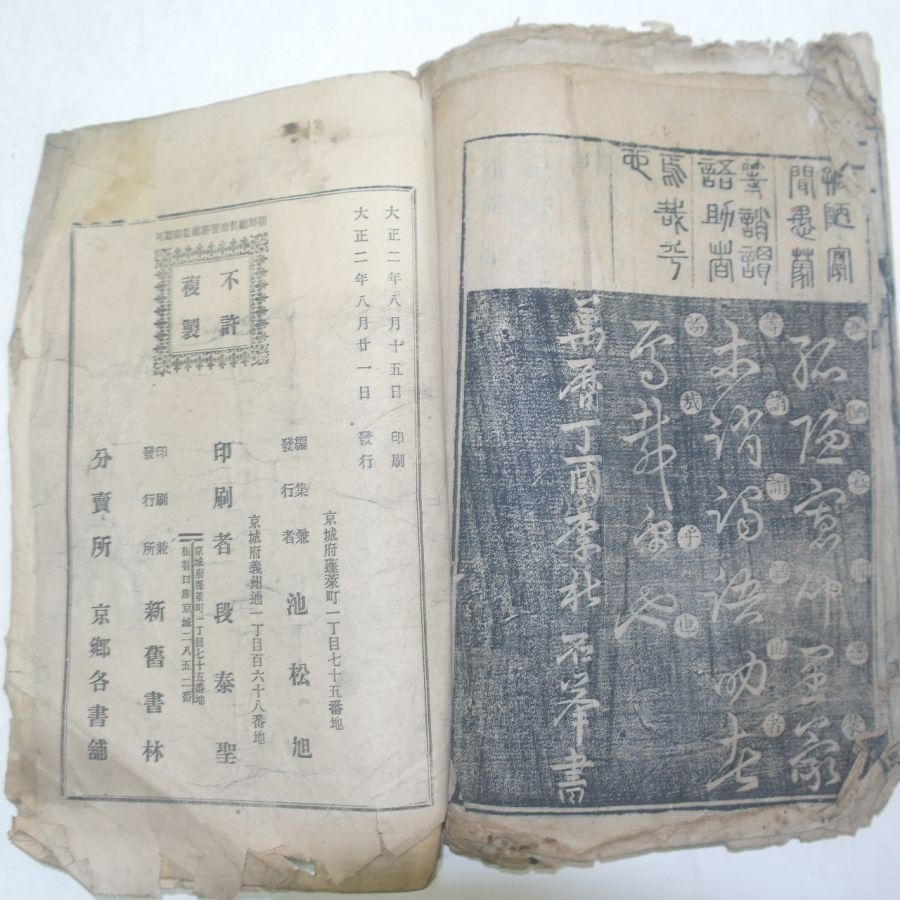 孤陋寡
聞愚蒙
等誚謂
語助者
焉哉乎
也
孤陋寡聞愚蒙
孤陋寡聞愚蒙
等誚謂語助者
等誚謂語助者
焉哉乎也
焉哉乎也
萬曆丁酉季秋石峯書
大正二年八月十五日 印刷
大正二年八月廿一日 發行
不許
複製
京城府蓬萊町一丁目七十五番地
編集兼發行者 池松旭
京城府義州通一丁目百六十八番地
印刷者 段泰聖
京城府蓬萊町一丁目七十五番地
振替口座京城二八五二番
印刷兼發行所 新舊書林
分賣所 京鄉各書舖